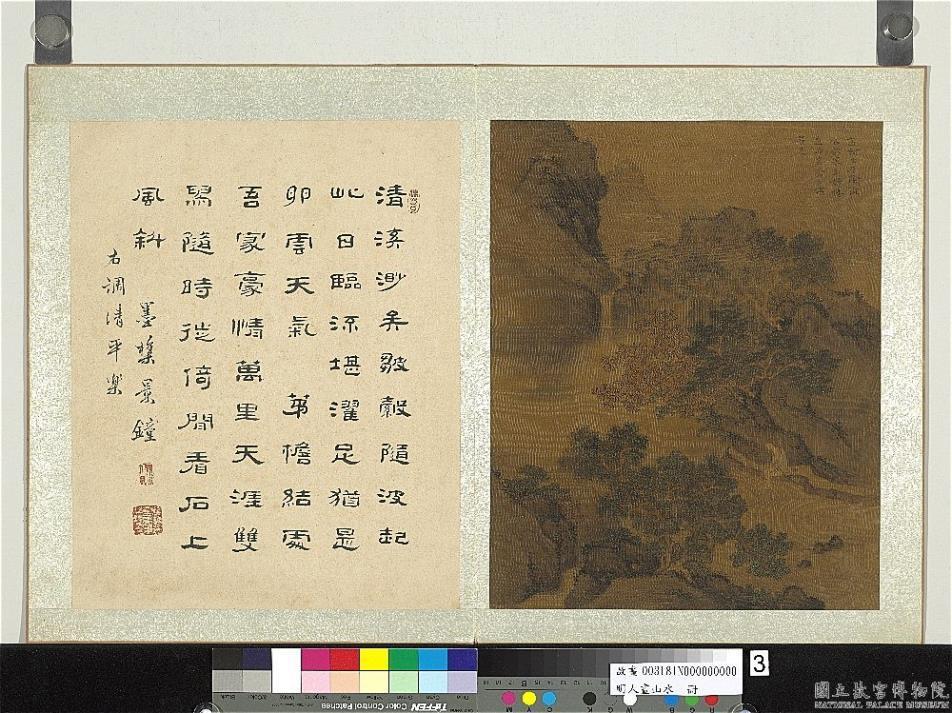 清溪渺矣皺縠隨波起
此日臨流堪濯足猶是
卯雲天氣 茅檐結處
吾家豪情萬里天涯雙
舄隨時徙倚閒看石上
風斜
右調清平樂
墨樵景鐘
TIFFEN Color Control Patches
故畫 003181N000000000
明人畫山水 冊
3
國立故宮博物院
NATIONAL PALACE MUSEUM